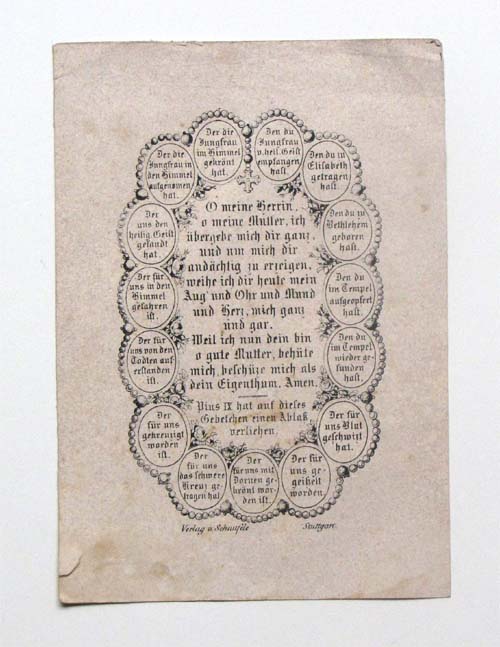 Den du
Jungfrau
v. heil. Geist
empfangen
hast.
Den du zu
Elisabeth
getragen
hast.
Den du zu
Bethlehem
geboren
hast.
Den du
im Tempel
aufgeopfert
hast.
Den du
im Tempel
wieder ge-
funden
hast.
Der für
uns Blut
geschwizt
hat.
Der für
uns ge-
geißelt
worden.
Der
für uns mit
Dornen ge-
krönt wor-
den ist.
Der
für uns
das schwere
Kreuz ge-
tragen hat.
Der
für uns
gekreuzigt
worden
ist.
Der für
uns von den
Todten auf-
erstanden
ist.
Der für
uns in den
Himmel
gefahren
ist.
Der
uns den
heilig. Geist
gesandt
hat.
Der die
Jungfrau in
den Himmel
aufgenomen
hat.
Der die
Jungfrau
im Himmel
gekrönt
hat.
O meine Herrin,
o meine Mutter, ich
übergebe mich dir ganz,
und um mich dir
andächtig zu erzeigen,
weihe ich dir heute mein
Aug' und Ohr und Mund
und Herz, mich ganz
und gar.
Weil ich nun dein bin
o gute Mutter, behüte
mich, beschüze mich als
dein Eigenthum. Amen.
Pius IX hat auf dieses
Gebetchen einen Ablaß
verliehen.
Verlag v. Schnufele Stuttgart.